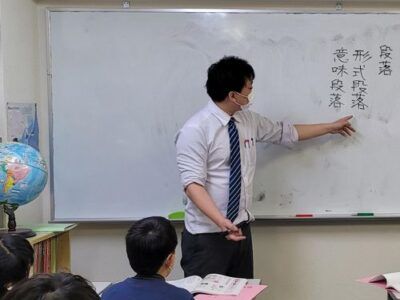 段落
形式段落
意味段落